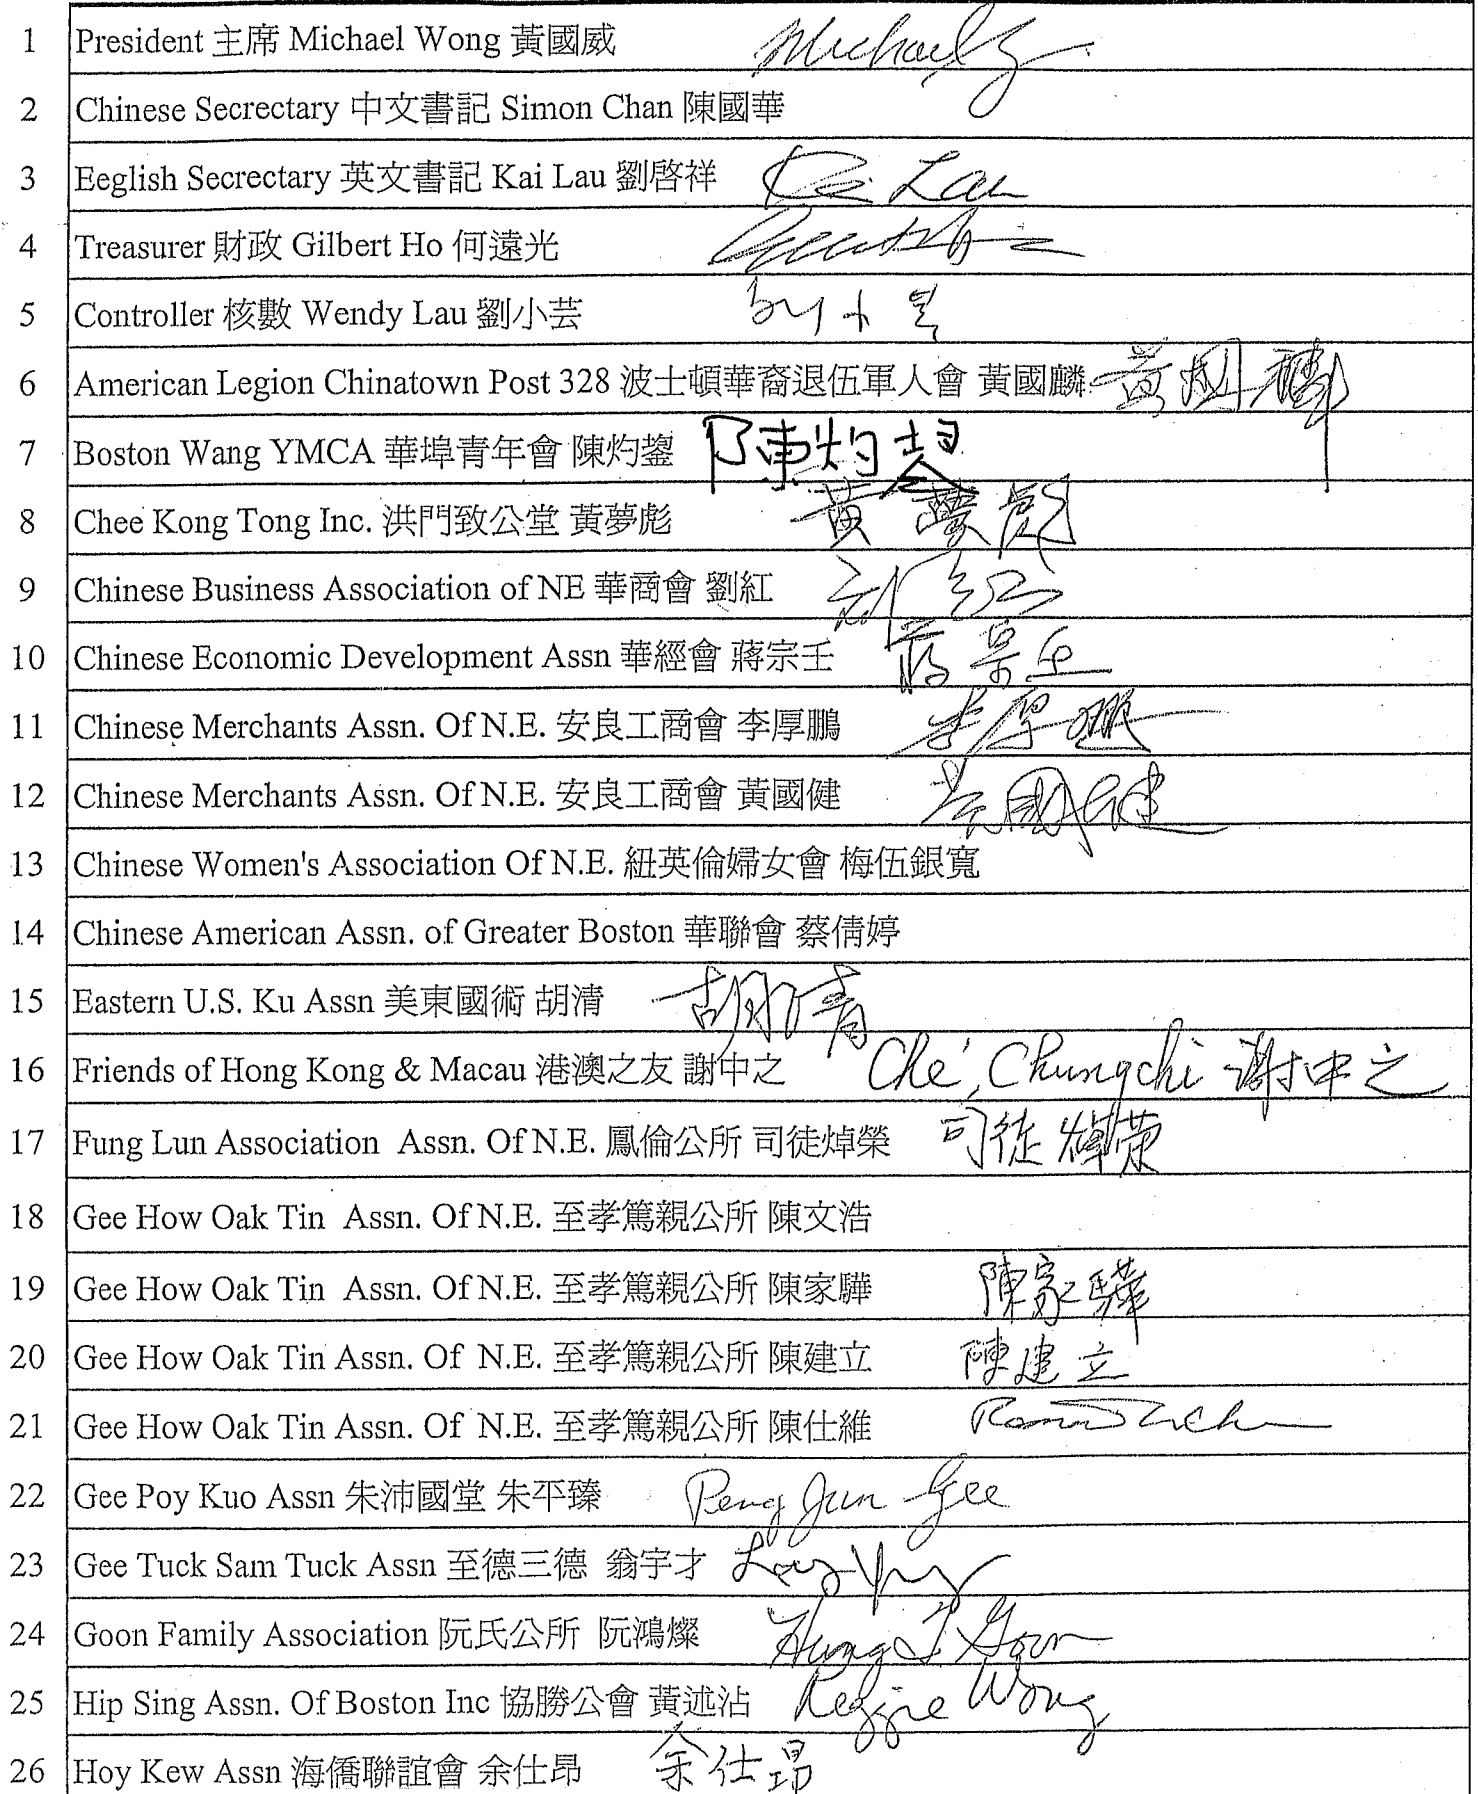 1 President 主席 Michael Wong 黃國威 Michael
2 Chinese Secrectary 中文書記 Simon Chan 陳國華
3 Eeglish Secrectary 英文書記 Kai Lau 劉啓祥 Kai Lau
4 Treasurer 財政 Gilbert Ho 何遠光
5 Controller 核數 Wendy Lau 劉小芸 刘小芸
6 American Legion Chinatown Post 328 波士頓華裔退伍軍人會 黃國麟 黃國麟
7 Boston Wang YMCA 華埠青年會 陳灼鋆 陳灼
8 Chee Kong Tong Inc. 洪門致公堂 黃夢彪 黃夢彪
9 Chinese Business Association of NE 華商會 劉紅 刘红
10 Chinese Economic Development Assn 華經會 蔣宗壬 蔣宗壬
11 Chinese Merchants Assn. Of N.E. 安良工商會 李厚鵬 李厚鵬
12 Chinese Merchants Assn. Of N.E. 安良工商會 黃國健 黃國健
13 Chinese Women's Association Of N.E. 紐英倫婦女會 梅伍銀寬
14 Chinese American Assn. of Greater Boston 華聯會 蔡倩婷
15 Eastern U.S. Ku Assn 美東國術 胡清 胡清
16 Friends of Hong Kong & Macau 港澳之友 謝中之 Che, Chungchi 謝中之
17 Fung Lun Association Assn. Of N.E. 鳳倫公所 司徒焯榮 司徒焯荣
18 Gee How Oak Tin Assn. Of N.E. 至孝篤親公所 陳文浩
19 Gee How Oak Tin Assn. Of N.E. 至孝篤親公所 陳家驊 陳家驊
20 Gee How Oak Tin Assn. Of N.E. 至孝篤親公所 陳建立 陳建立
21 Gee How Oak Tin Assn. Of N.E. 至孝篤親公所 陳仕維
22 Gee Poy Kuo Assn 朱沛國堂 朱平臻 Peng Jun Gee
23 Gee Tuck Sam Tuck Assn 至德三德 翁宇才
24 Goon Family Association 阮氏公所 阮鴻燦 Hung I Goon
25 Hip Sing Assn. Of Boston Inc 協勝公會 黃述沾 Reggie Wong
26 Hoy Kew Assn 海僑聯誼會 余仕昂 余仕昂